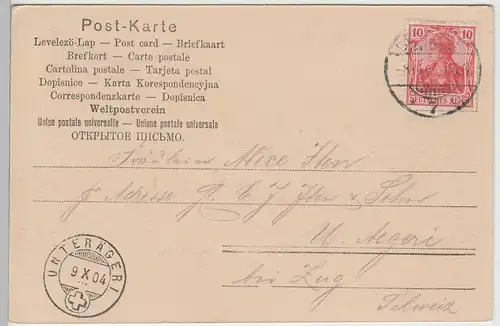 Post-Karte
Levelezö-Lap — Post card — Briefkaart
Brefkort — Carte postale
Cartolina postale — Tarjeta postal
Dopisnice — Karta Korespondencyjna
Correspondenzkarte — Dopisnica
Weltpostverein
Union postale universelle — Unione postale universale
ОТКРЫТОЕ ПИСЬМО.
10 10
DEUTSCHES REICH
Fräulein Alice Iten
p. Adresse P. C. J. Iten & Sohn
U. Aegeri
bei Zug
Schweiz
UNTERÄGERI
9 X 04